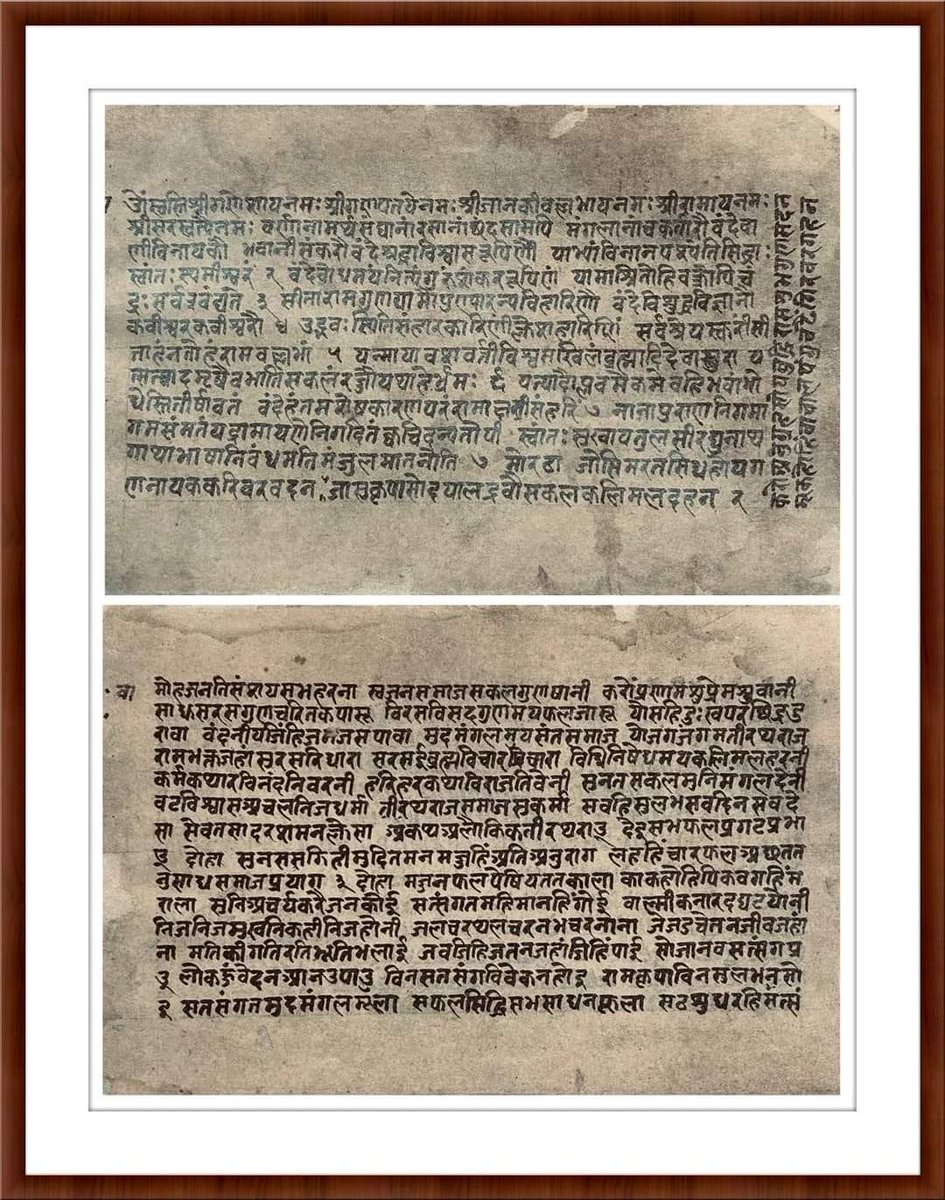 ओंस्वस्तिश्रीगणेशायनमः श्रीगणपतयेनमः श्रीजानकीवल्लभायनमः श्रीरामायनमः
श्रीसरस्वत्यैनमः वर्णानामर्थसंघानांरसानांछंदसामपि मंगलानांचकर्त्तारौवंदेवा
णीविनायकौ भवानीसंकरौवंदेश्रद्धाविश्वासरूपिणौ याभ्यांविनानपश्यंतिसिद्धाः
स्वांतःस्थमीश्वरं २ वंदेबोधमयंनित्यंगुरुंशंकररूपिणं यामाश्रितोहिवक्रोपिचं
द्रःसर्वत्रवंद्यते ३ सीतारामगुणग्रामपुण्यारन्यविहारिणौ वंदेविशुद्धविज्ञानौ
कवीश्वरकपीश्वरौ ४ उद्भवःस्थितिसंहारकारिणींक्लेशहारिणीं सर्वश्रेयस्करींसी
तांनतोहंरामवल्लभां ५ यन्मायावशवर्त्तीविश्वमखिलंब्रह्मादिदेवासुरा य
त्सत्वादमृषैवभातिसकलंरज्जौयथाहेर्भ्रमः ६ यत्पादौप्लवमेकमेवहिभवांभो
धेस्तितीर्षावतां वंदेहंतमशेषकारणपरंरामाख्यमीसंहरिं ७ नानापुराणनिगमा
गमसंमतंयद्रामायणेनिगदितंक्वचिदन्यतोपी स्वांतःसुखायतुलसीरघुनाथ
गाथाभाषानिबंधमतिमंजुलमातनोति ७ सोरठा जोसिमरतसिधहोयग
णनायककरिवरवदन जासुकृपासोदयालद्रवौसकलकलिमलदहन २
मोहजनतिसंशयसभहरना स्वजनसमाजसकलगुणषानी करोंप्रणामसुप्रेमसुबानी
साधसरसगुणचरितकपासू विरसविसदगुणमयफलजासू योसहिदुःखपरछिद्रदु
रावा वंदनीयजिंहिजगजसपावा मुदमंगलमयसंतसमाजू योजगजंगमतीरथराज
रामभक्तजहांसुरसरिधारा सरसईब्रह्मविचारप्रचारा विधिनिषेधमयकलिमलहरनी
कर्मकथारविनंदनिवरनी हरिहरकथाविराजतिवेनी सुनतसकलमुनिमंगलदेनी
वटविश्वासअचलनिजधर्मा तीरथराजसमाजसुकर्मा सवहिसुलभसवदिनसवदे
सा सेवतसादरशमनक्लेसा अकथअलौकिकतीरथराउ देइसभफलप्रगटप्रभा
उ दोहा सुनसमझिहीमुदितमनमज्जहिंअतिअनुराग लहहिंचारफलअछतत
नुसाधसमाजप्रयाग ३ दोहा मज्जनफलपेषियततकाला काकहोहिपिकवगहिम
राला सुनिअचर्यकरैजनकोई सत्संगतमहिमानहिंगोई वाल्मीकनारदघटयोनी
निजनिजमुखनिकहीनिजहोनी जलचरथलचरनभचरनाना जेजडचेतनजीवजहां
ना मतिकीरतिगतिभूतिभलाई जवजिहिजतनजहांजिहिंपाई सोजानवसत्संगप्र
उ लोकहूंवेदनआनउपाउ विनसतसंगविवेकनहोइ रामकृपाविनसुलभनसो
इ सतसंगतमुदमंगलमूला सफलसिद्धिसभसाधनफूला सठसुधरहिंसत्सं